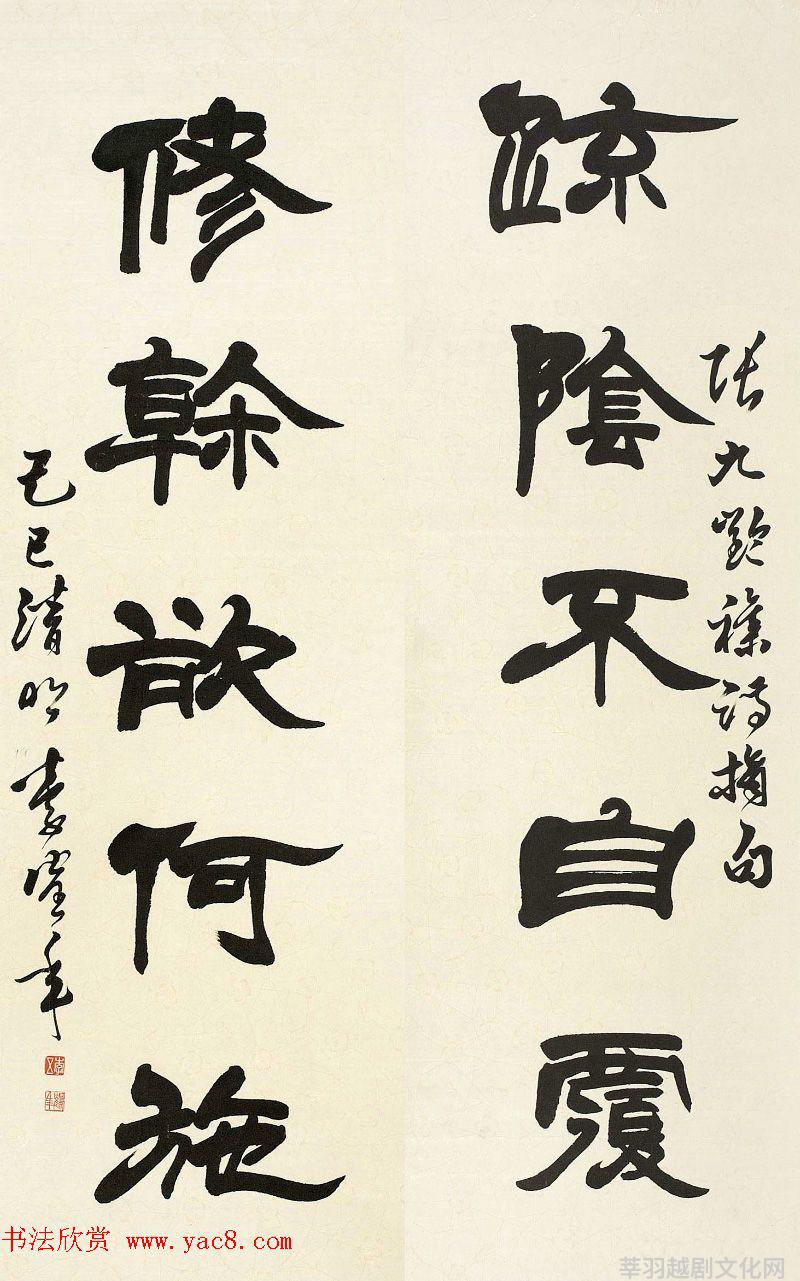 疎陰不自覆
修幹欲何施
張九齡雜詩摘句
己巳清明
書法欣赏 www.yac8.com
莘羽越剧文化网